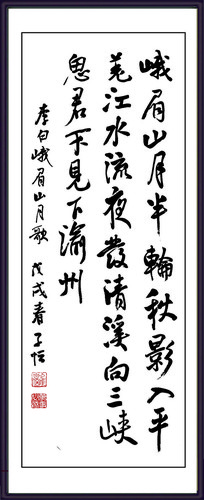 峨眉山月半輪秋影入平
羌江水流夜發清溪向三峡
思君不見下渝州
李白峨眉山月歌 戊戌春子恒